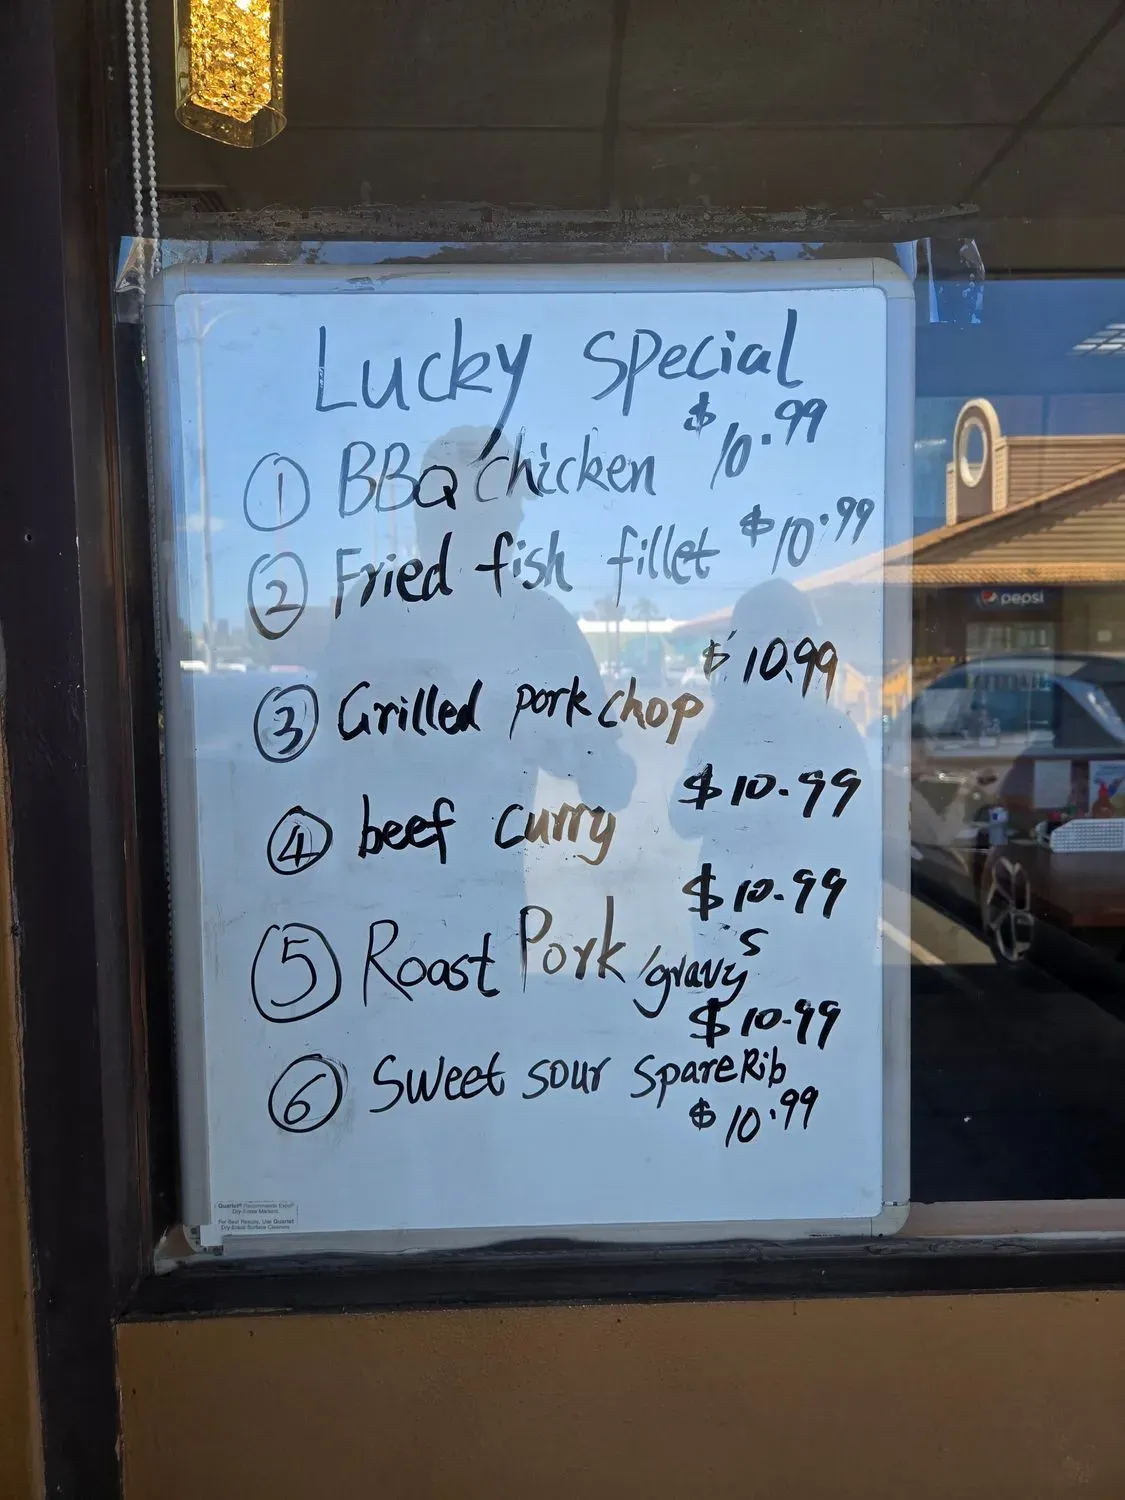 Lucky Special
① BBQ chicken $10.99
② Fried fish fillet $10.99
③ Grilled pork chop $10.99
④ beef curry $10.99
$10.99
⑤ Roast Pork /gravy's
$10.99
⑥ Sweet sour SpareRib
$10.99
Quartet® Recommends Expo®
Dry-Erase Markers.
For Best Results, Use Quartet
Dry-Erase Surface Cleaners
pepsi